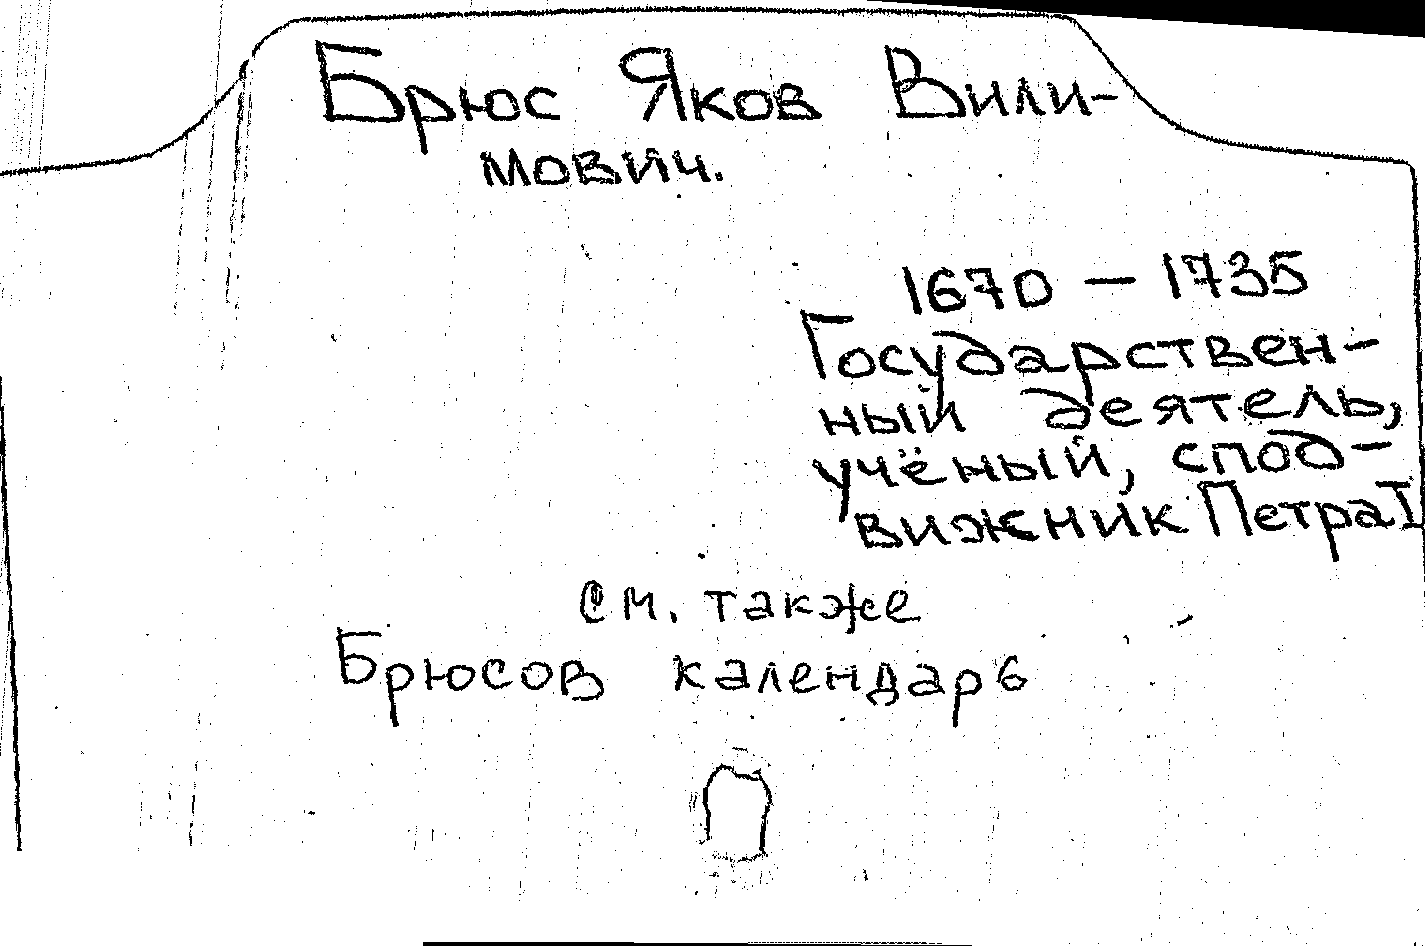 Брюс Яков Вили-
мович.
1670 — 1735
Государствен-
ный деятель,
учёный, спод-
вижник Петра I
см. также
Брюсов календарь